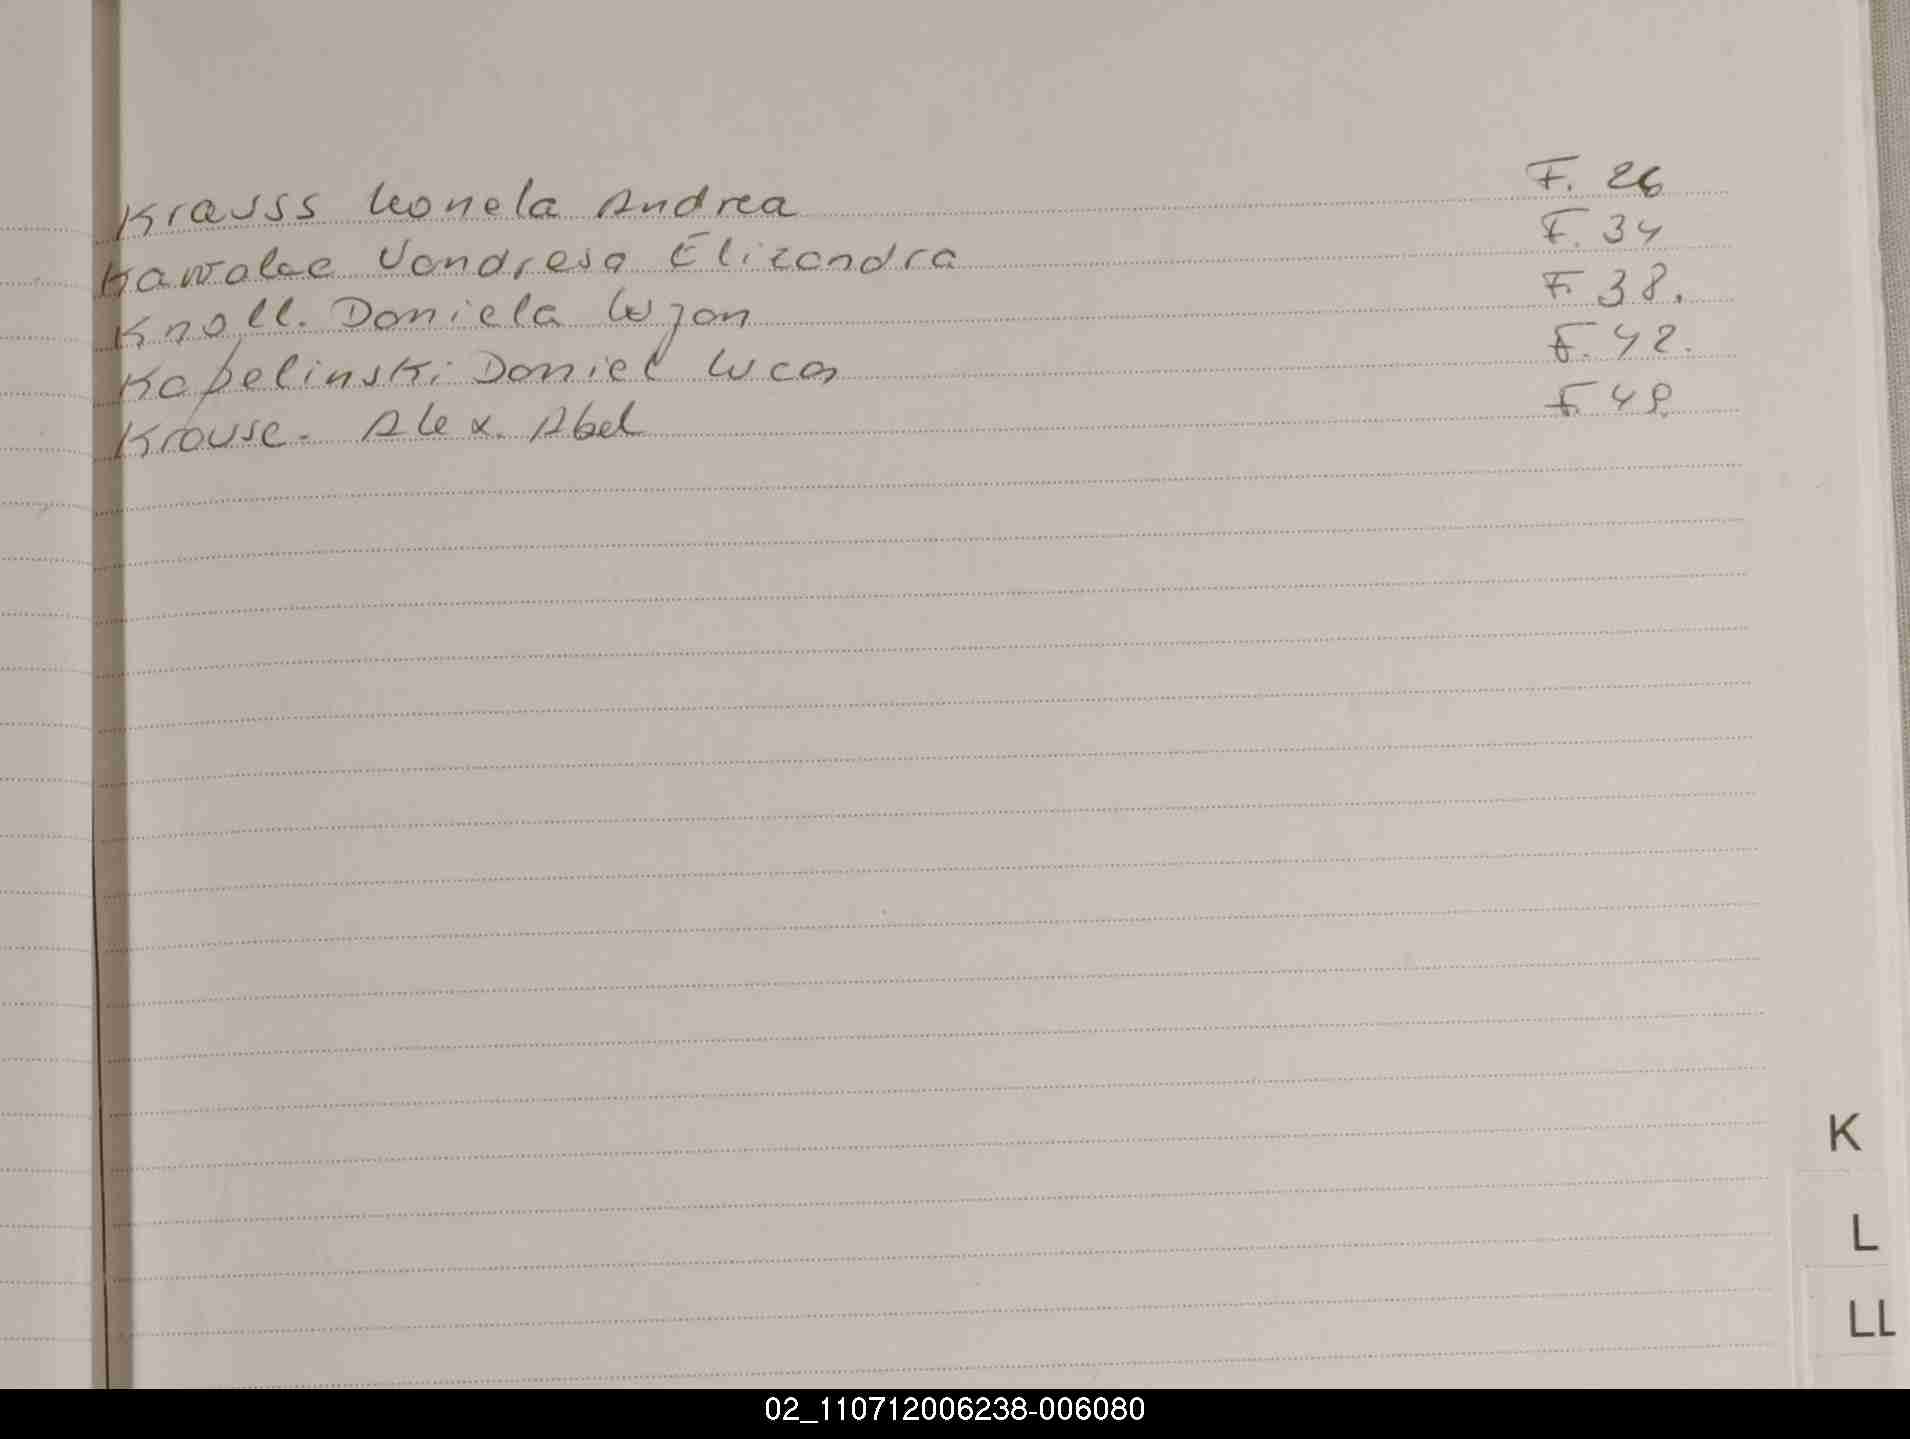 Krauss Leonela Andrea F. 26
Kawalec Vandresa Elizandra F. 34
Knoll. Daniela Lujan F. 38.
Kapelinski Daniel Lucas F. 42.
Krause. Alex. Abel F. 49.
K
L
LL
02_110712006238-006080